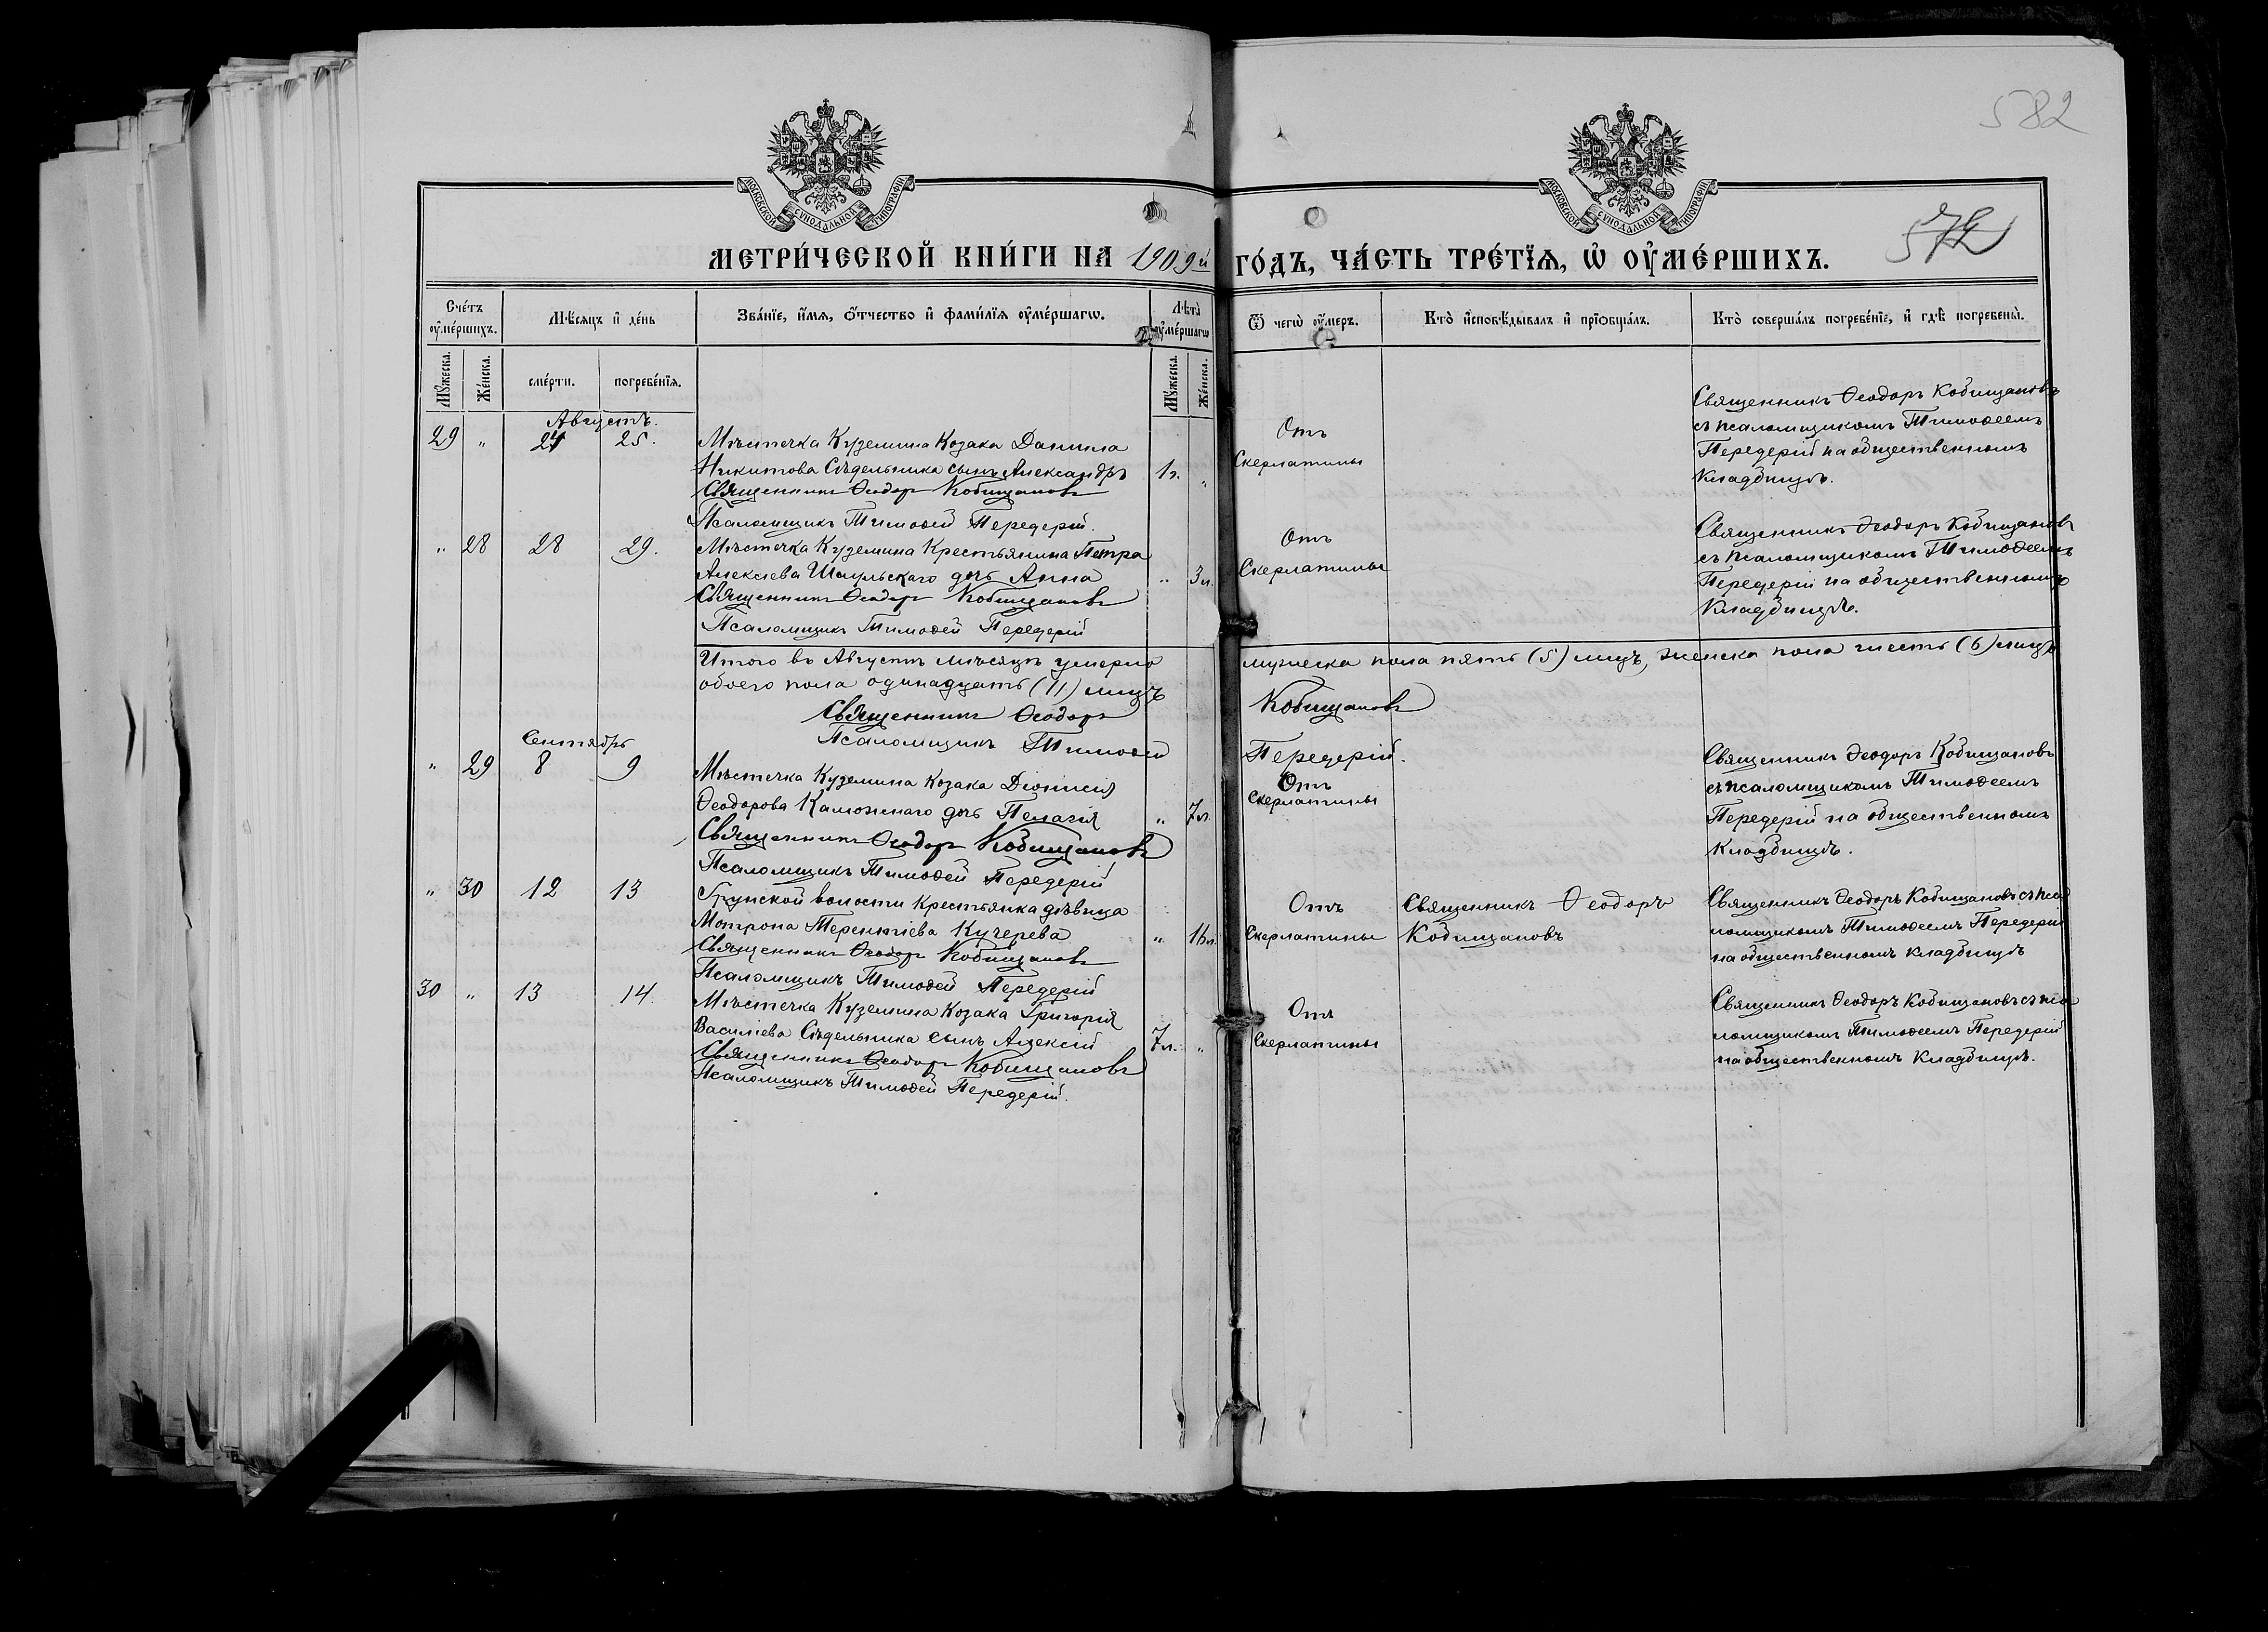 582
572
МОСКОВСКОЙ СѴНОДАЛЬНОЙ ТИПОГРАФІИ
МОСКОВСКОЙ СѴНОДАЛЬНОЙ ТИПОГРАФІИ
МЕТРИ́ЧЕСКОЙ КНИ́ГИ НА 1909й ГО́ДЪ, ЧА́СТЬ ТРЕ́ТЇѦ, Ѡ҆ ОУ҆МЕ́РШИХЪ.
Сче́тъ оу҆ме́ршихъ.
Мꙋ́жеска.
Же́нска.
Мѣ́сяцъ и҆ де́нь
сме́рти.
погребе́нїѧ.
Зва́нїе, и҆́мѧ, ѻ҆́тчество и҆ фами́лїѧ оу҆ме́ршагѡ.
Лѣ́та оу҆ме́ршагѡ
Мꙋ́жеска.
Же́нска.
Ѿ чегѡ̀ оу҆́меръ.
Кто̀ и҆сповѣ́дывалъ и҆ прїѡбща́лъ.
Кто̀ соверша́лъ погребе́нїе, и҆ гдѣ̀ погребены̀.
Августъ.
29 " 24 25.
Мѣстечка Куземина Козака Данила
Никитова Сѣдельника сынъ Александръ 1г. "
Священникъ Ѳеодоръ Кобищановъ
Псаломщикъ Тимоѳей Передерій.
Отъ
Скерлатины
Священникъ Ѳеодоръ Кобищановъ
съ псаломщикомъ Тимоѳеемъ
Передерій на общественномъ
кладбищѣ.
" 28 28 29.
Мѣстечка Куземина Крестьянина Петра
Алексіева Шаульскаго дочь Анна " 3л.
Священникъ Ѳеодоръ Кобищановъ
Псаломщикъ Тимоѳей Передерій
Отъ
Скерлатины
Священникъ Ѳеодоръ Кобищановъ
съ псаломщикомъ Тимоѳеемъ
Передерій на общественномъ
Кладбищѣ.
Итого въ Августѣ мѣсяцѣ умерло мужеска пола пять (5) лицъ, женска пола шесть (6) лицъ
обоего пола одинадцать (11) лицъ
Священникъ Ѳеодоръ Кобищановъ
Псаломщикъ Тимоѳей Передерій.
Сентябрь
" 29 8 9
Мѣстечка Куземина Козака Діонисія
Ѳеодорова Калюжнаго дочь Пелагія " 7л.
Священникъ Ѳеодоръ Кобищановъ
Псаломщикъ Тимоѳей Передерій
Отъ
Скерлатины
Священникъ Ѳеодоръ Кобищановъ
съ псаломщикомъ Тимоѳеемъ
Передерій на общественномъ
кладбищѣ.
" 30 12 13
Грунской волости Крестьянка дѣвица
Мотрона Терентіева Кучерева " 16л.
Священникъ Ѳеодоръ Кобищановъ
Псаломщикъ Тимоѳей Передерій
Отъ
Скерлатины
Священникъ Ѳеодоръ
Кобищановъ
Священникъ Ѳеодоръ Кобищановъ съ пса
ломщикомъ Тимоѳеемъ Передерій
на общественномъ кладбищѣ
30 " 13 14.
Мѣстечка Куземина Козака Григорія
Василіева Сѣдельника сынъ Алексій 7л. "
Священникъ Ѳеодоръ Кобищановъ
Псаломщикъ Тимоѳей Передерій.
Отъ
Скерлатины
Священникъ Ѳеодоръ Кобищановъ съ пса
ломщикомъ Тимоѳеемъ Передерій
на общественномъ Кладбищѣ.